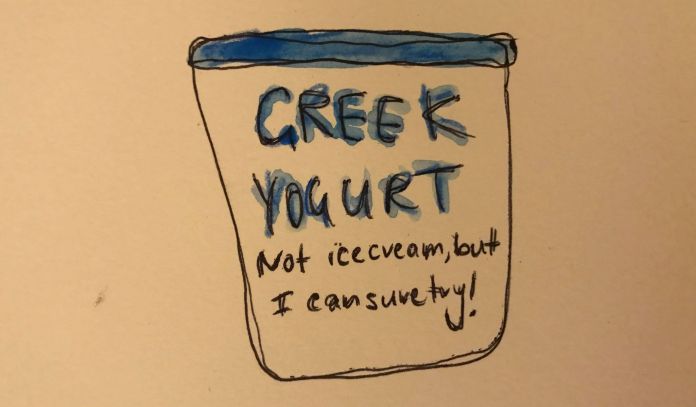 GREEK
YOGURT
Not icecream, but
I can sure try!